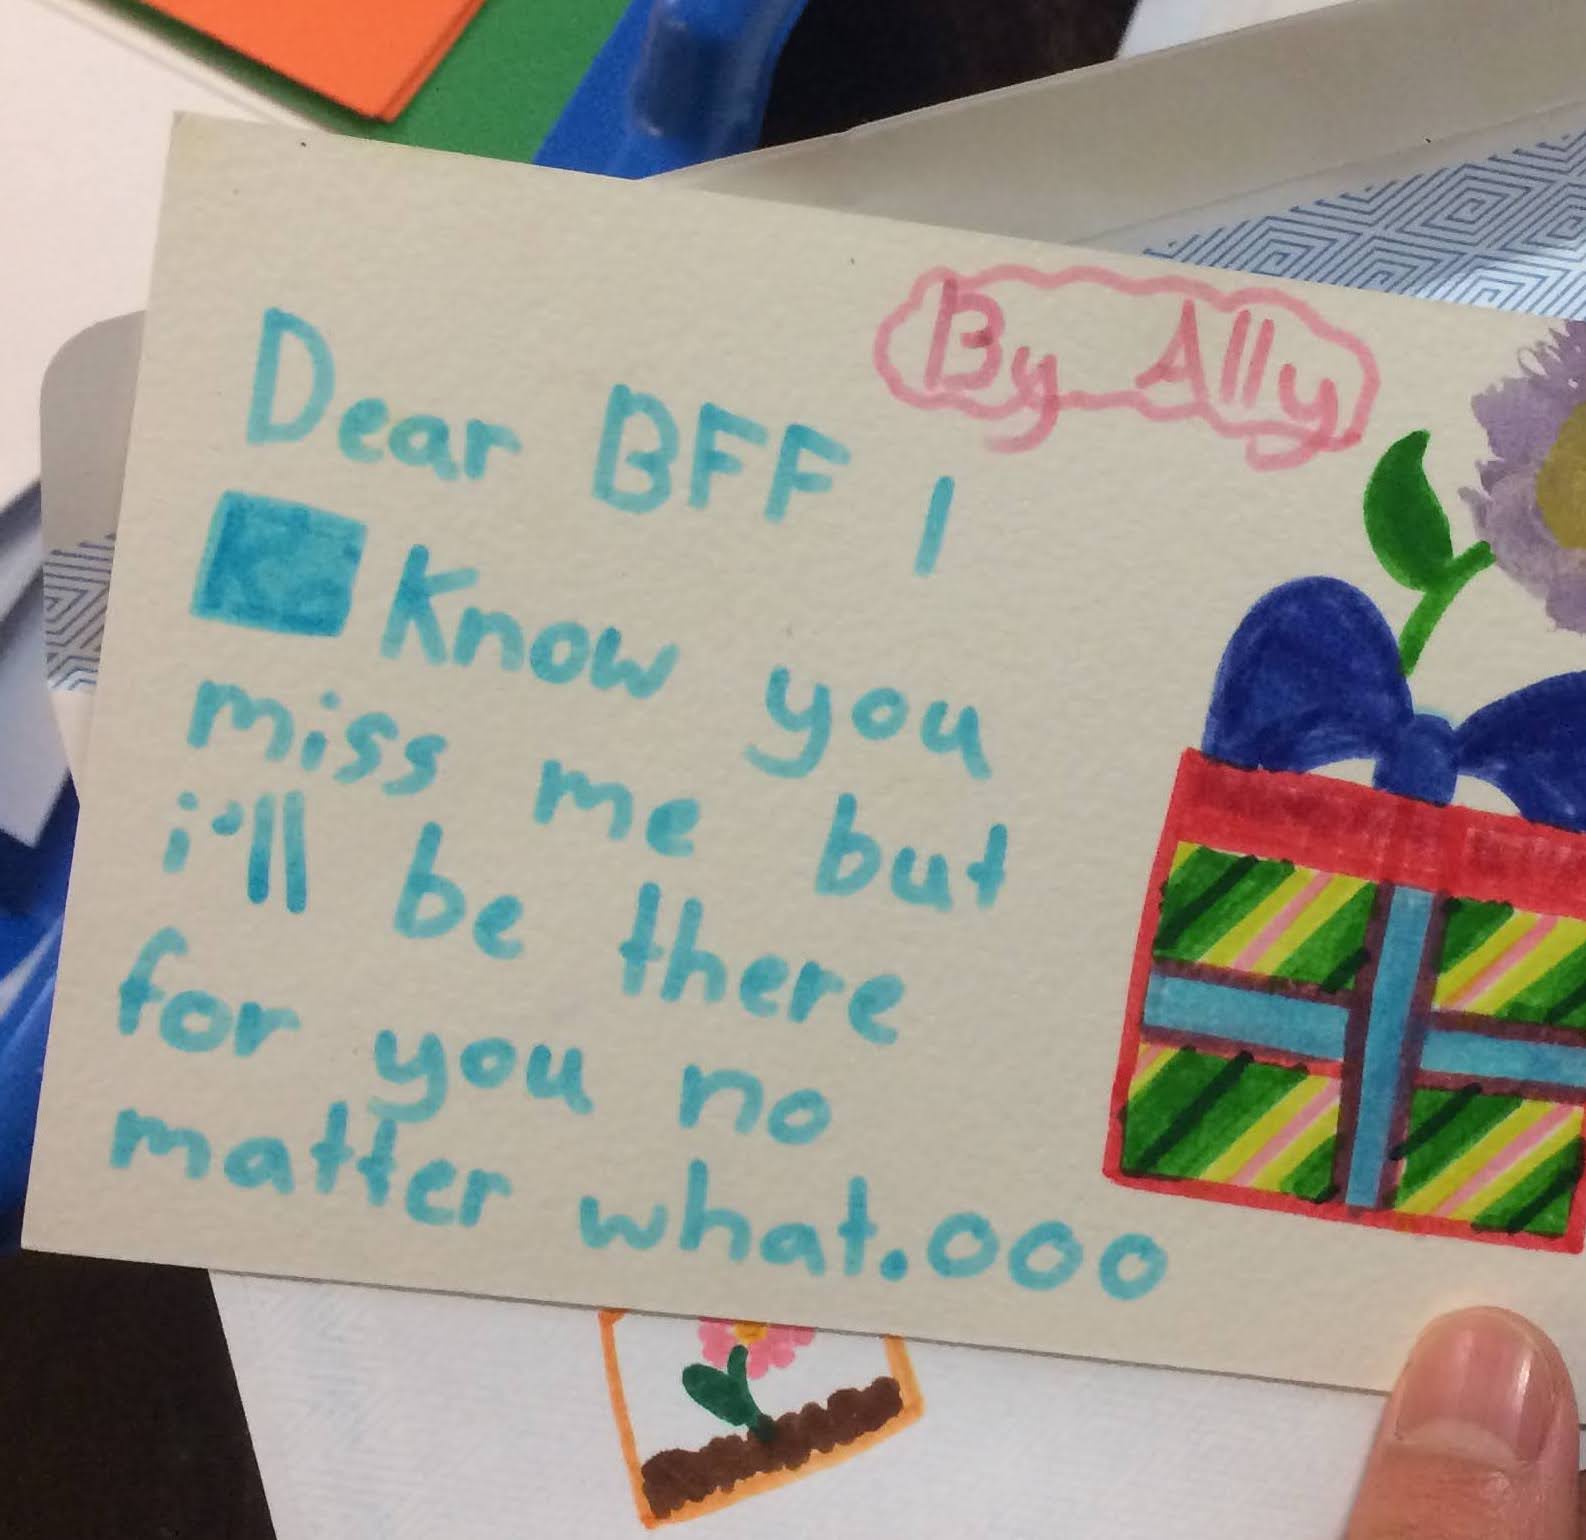 By Ally
Dear BFF I
Know you
miss me but
i'll be there
for you no
matter what.ooo